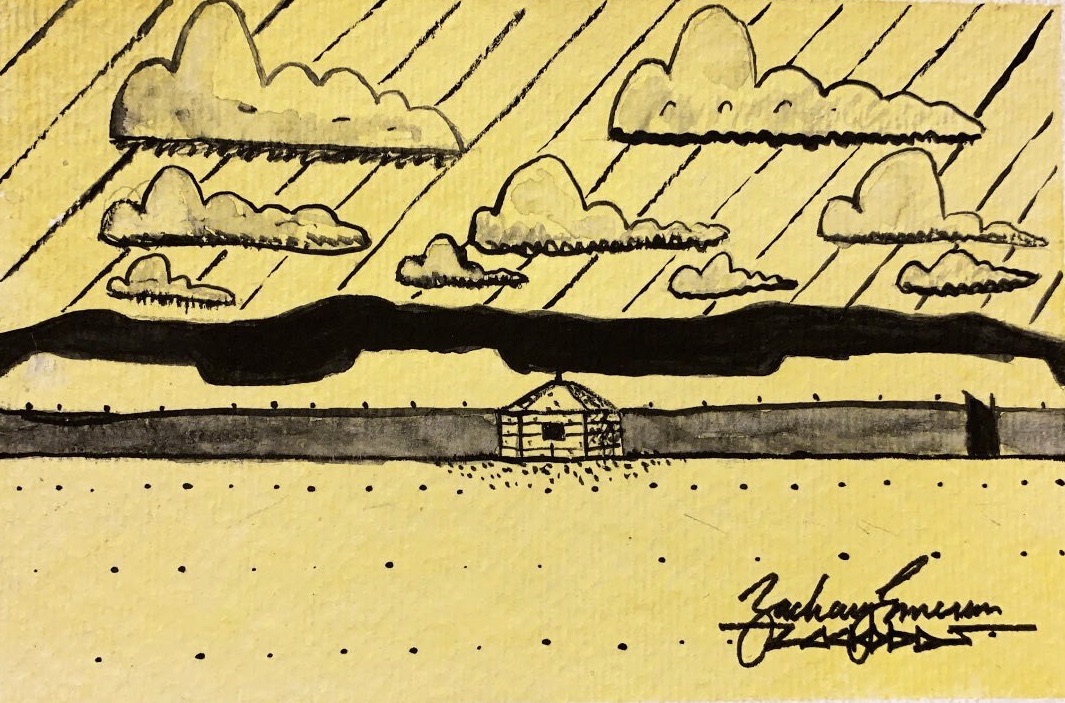 Zachary Emerson